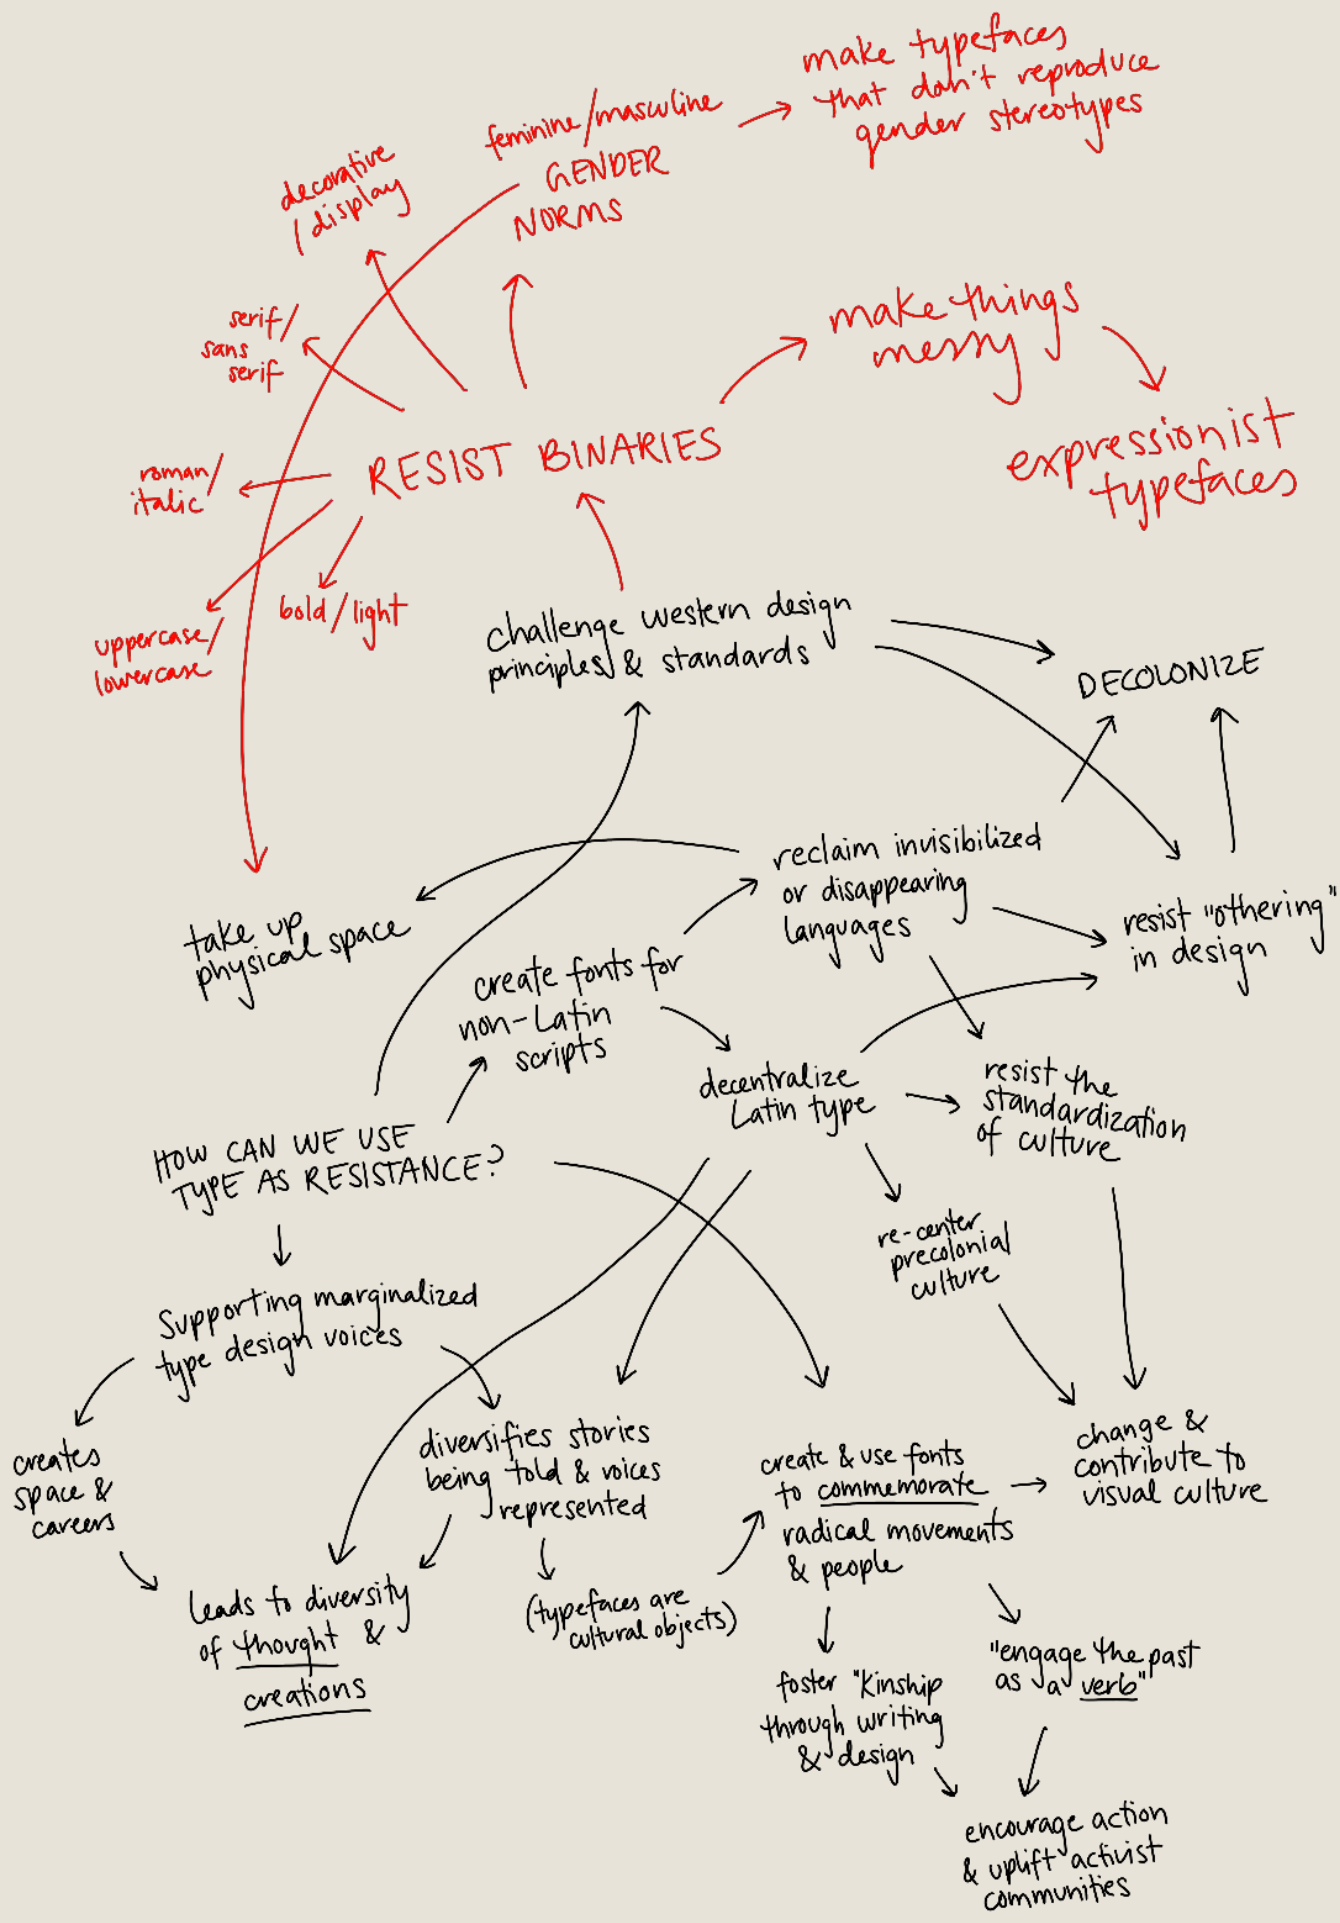 make typefaces
that don't reproduce
gender stereotypes
feminine/masculine
GENDER
NORMS
decorative
/display
serif/
sans
serif
make things
messy
expressionist
typefaces
RESIST BINARIES
roman/
italic
uppercase/
lowercase
bold/light
challenge western design
principles & standards
DECOLONIZE
reclaim invisibilized
or disappearing
languages
resist "othering"
in design
take up
physical space
create fonts for
non-Latin
scripts
decentralize
Latin type
resist the
standardization
of culture
HOW CAN WE USE
TYPE AS RESISTANCE?
re-center
precolonial
culture
Supporting marginalized
type design voices
creates
space &
careers
diversifies stories
being told & voices
represented
create & use fonts
to commemorate
radical movements
& people
change &
contribute to
visual culture
leads to diversity
of thought &
creations
(typefaces are
cultural objects)
foster "kinship
through writing
& design
"engage the past
as a verb"
encourage action
& uplift activist
communities